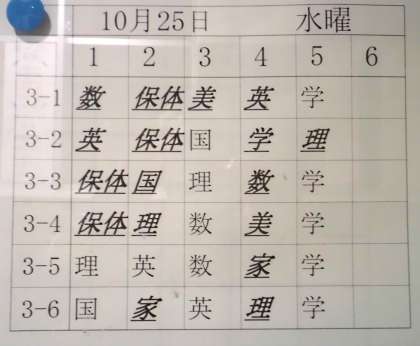 10月25日 水曜
1 2 3 4 5 6
3-1 数 保体 美 英 学
3-2 英 保体 国 学 理
3-3 保体 国 理 数 学
3-4 保体 理 数 美 学
3-5 理 英 数 家 学
3-6 国 家 英 理 学